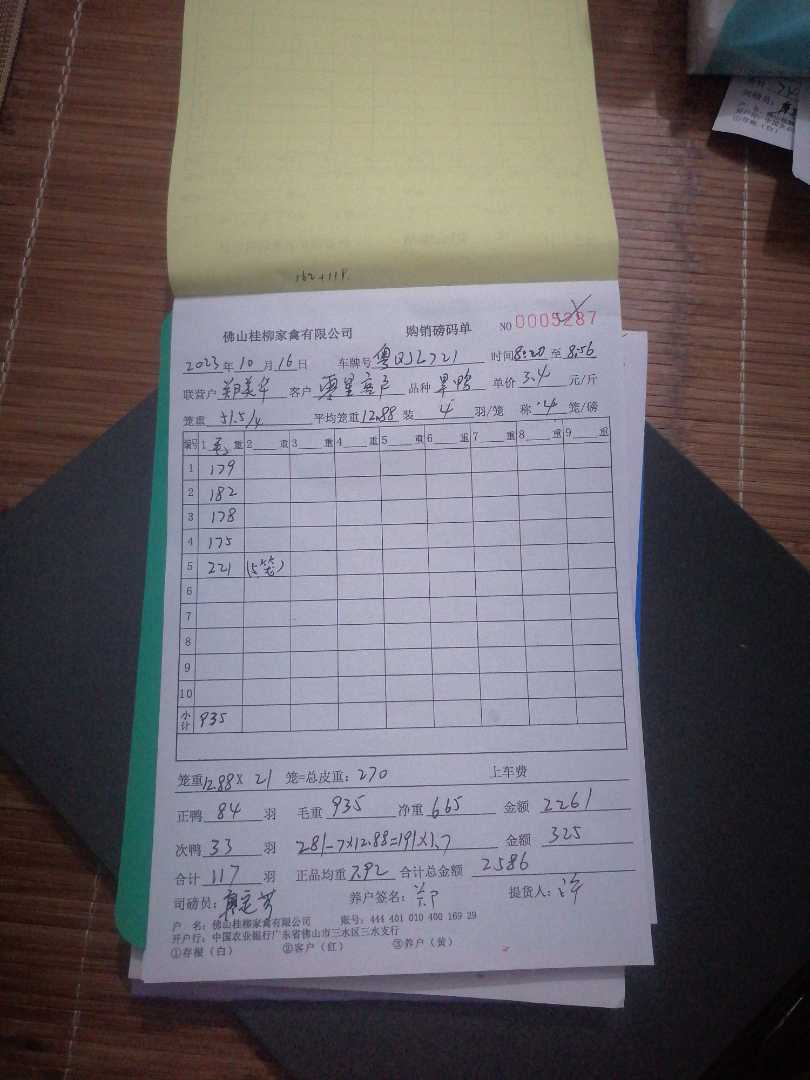 162+119
佛山桂柳家禽有限公司 购销磅码单 NO 0005287
2023年10月16日 车牌号 粤QJL721 时间8:20至8:56
联营户 郑美华 客户 零星客户 品种 旱鸭 单价 3.4 元/斤
笼重 51.5/4 平均笼重12.88 装 4 羽/笼 称 4 笼/磅
编号 1 毛 重 2 重 3 重 4 重 5 重 6 重 7 重 8 重 9 重
1 179
2 182
3 178
4 175
5 221 (5笼)
6
7
8
9
10
小计 935
笼重12.88×21 笼=总皮重:270 上车费
正鸭 84 羽 毛重 935 净重 665 金额 2261
次鸭 33 羽 281-7×12.88=191×1.7 金额 325
合计 117 羽 正品均重 7.92 合计总金额 2586
司磅员: 养户签名: 提货人: 许
户 名:佛山桂柳家禽有限公司 账号:444 401 010 400 169 29
开户行:中国农业银行广东省佛山市三水区三水支行
①存根(白) ②客户(红) ③养户(黄)